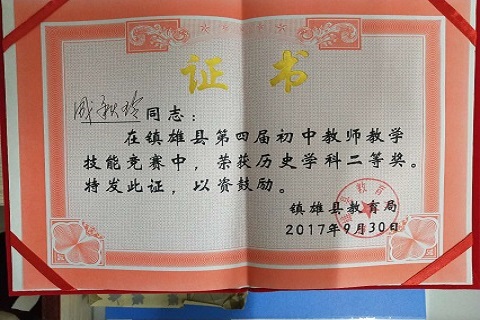 证书
成秋玲同志：
在镇雄县第四届初中教师教学
技能竞赛中，荣获历史学科二等奖。
特发此证，以资鼓励。
镇雄县教育局
2017年9月30日